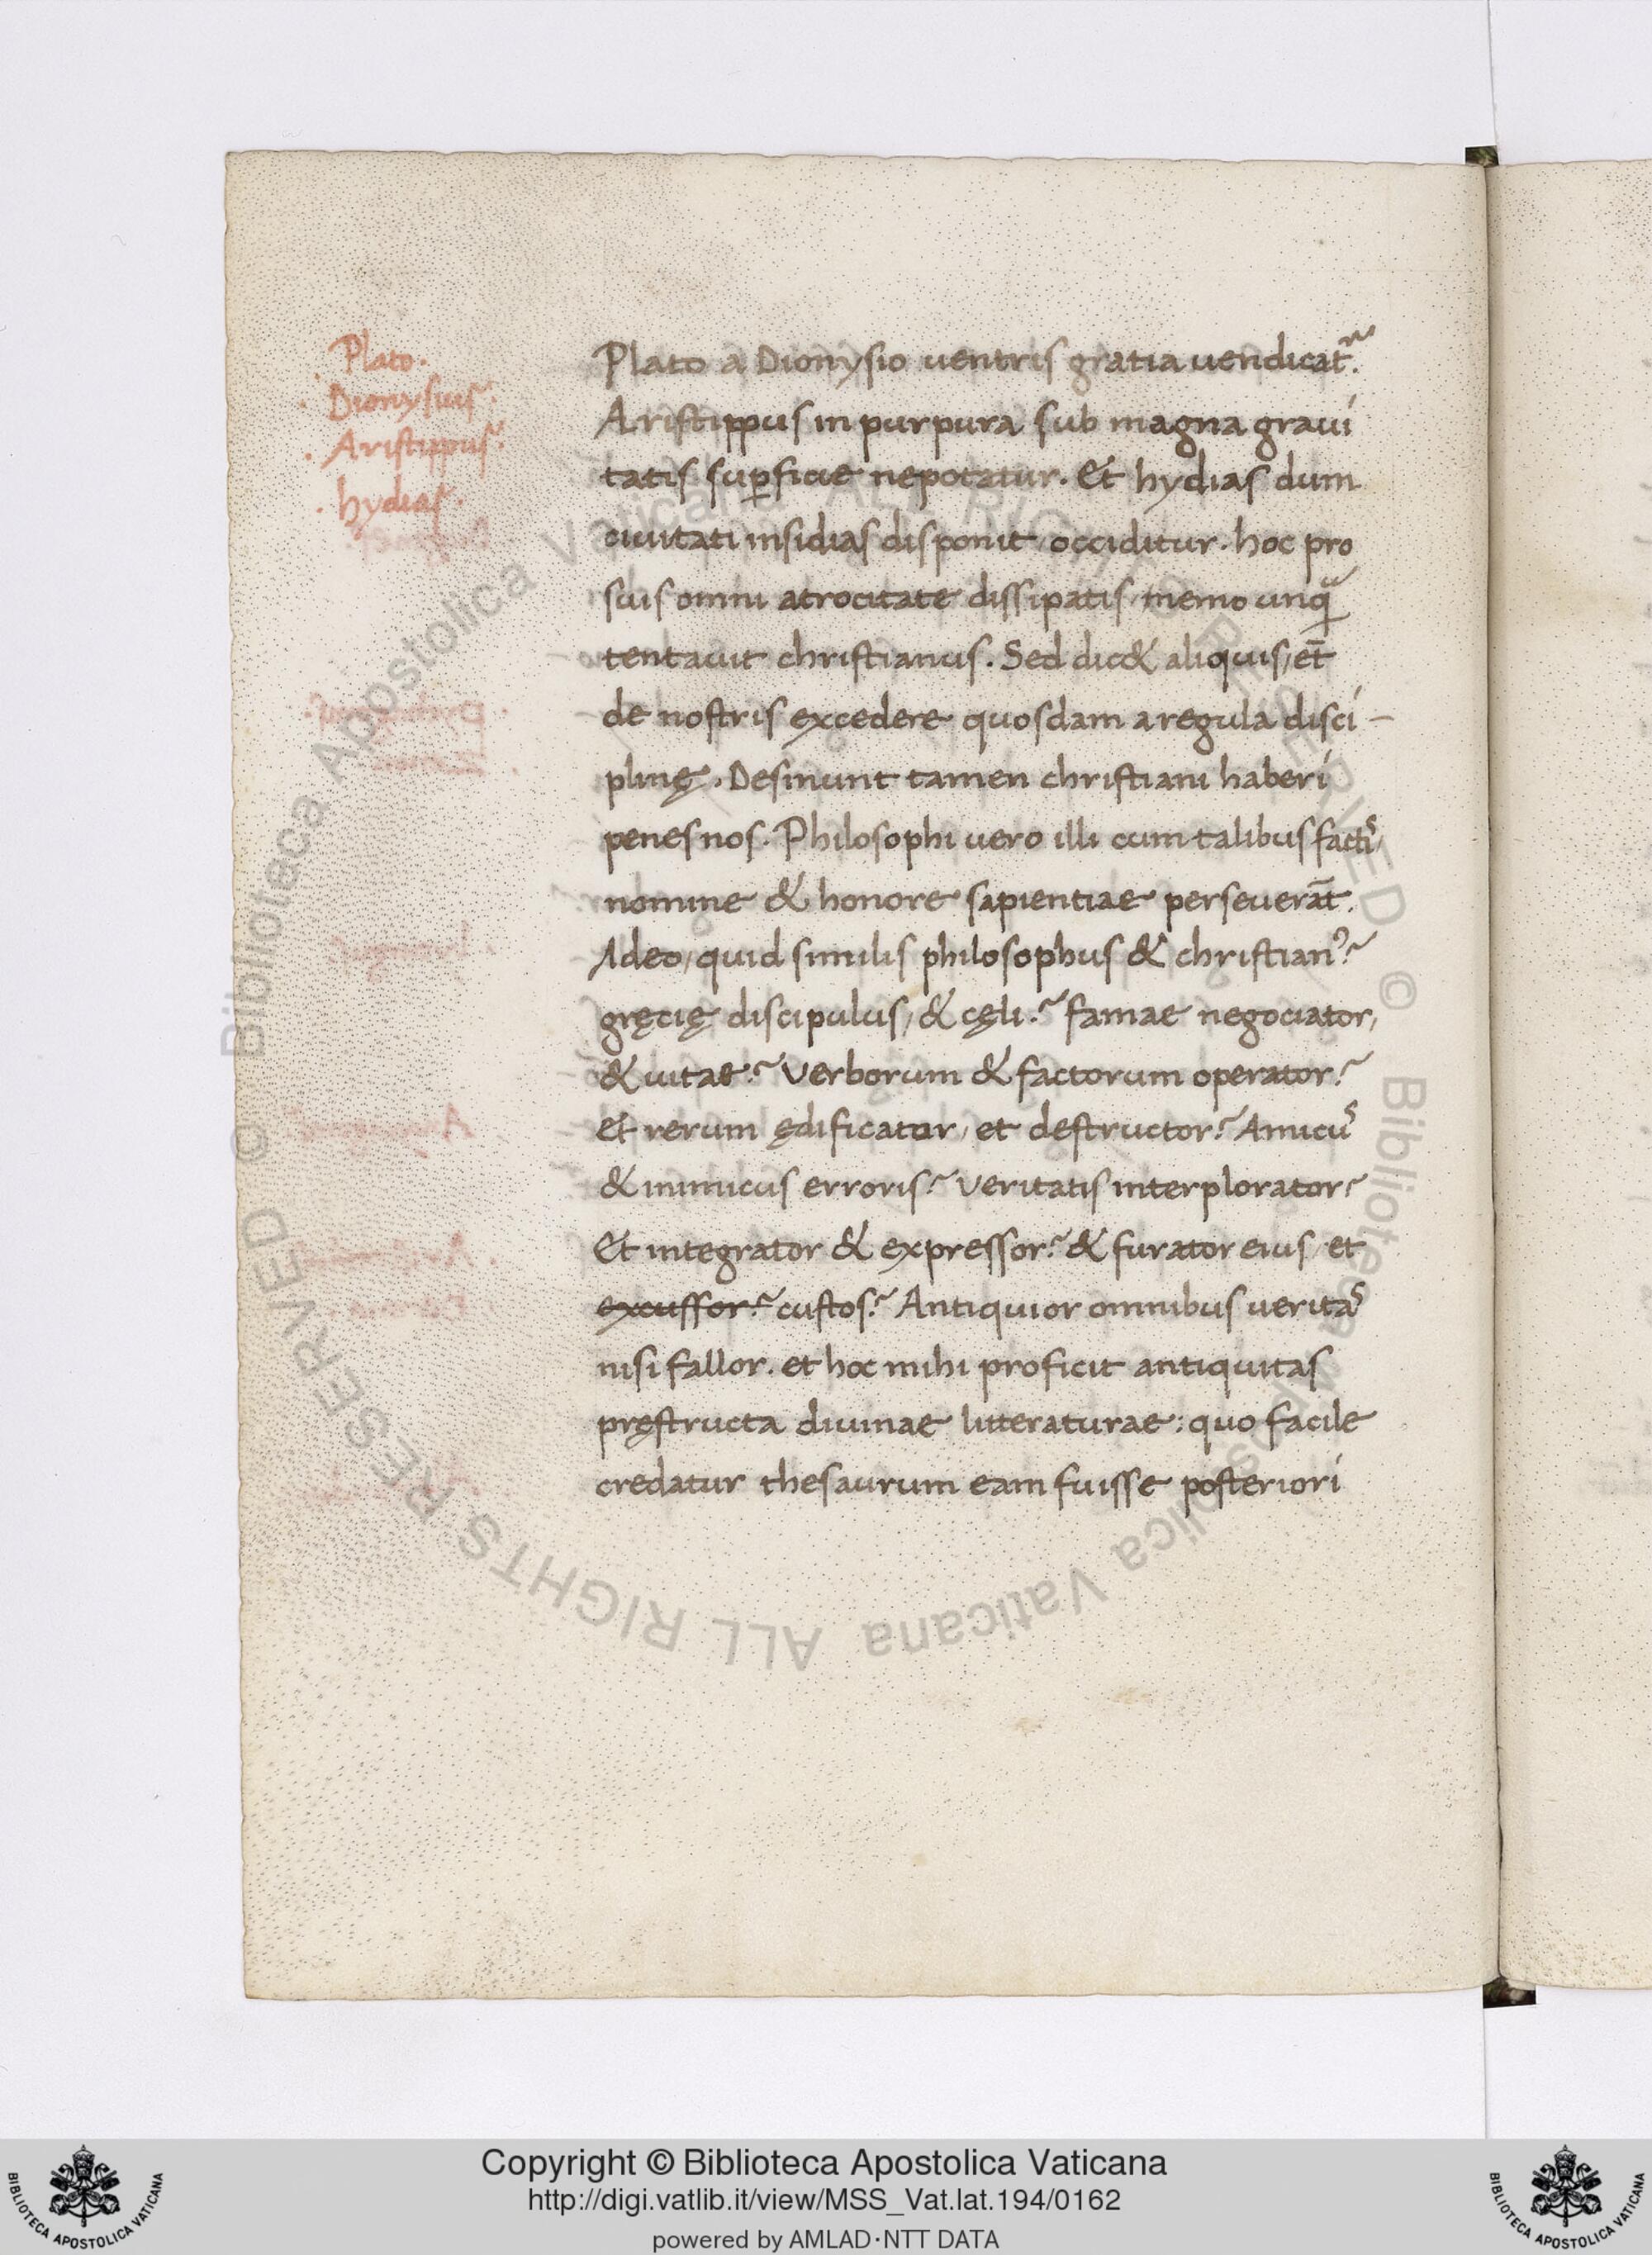 Plato.
Dionysius.
Aristippus.
hydias.
Plato a Dionysio uentris gratia uendicat᷑.
Aristippus in purpura sub magna graui
tatis suꝑficie nepotatur. Et hydias dum
ciuitati insidias disponit, occiditur. hoc pro
suis omni atrocitate dissipatis, nemo unqͣ
tentauit christianus. Sed dic& aliquis, et̄
de nostris excedere quosdam a regula disci-
plinę. Desinunt tamen christiani haberi
penes nos. Philosophi uero illi cum talibus factis,
nomine & honore sapientiae perseuerāt.
Adeo, quid similis philosophus & christianꝰ?
gręcię discipulus, & cęli? famae negociator,
& uitae? Verborum & factorum operator?
Et rerum ędificator, et destructor? Amicus
& inimicus erroris? Veritatis interplorator?
Et integrator & expressor? & furator eius, et
excussor? custos? Antiquior omnibus ueritas
nisi fallor. et hoc mihi proficit antiquitas
pręstructa diuinae litteraturae: quo facile
credatur thesaurum eam fuisse posteriori
© Biblioteca Apostolica Vaticana ALL RIGHTS RESERVED © Biblioteca Apostolica Vaticana ALL RIGHTS RESERVED
Copyright © Biblioteca Apostolica Vaticana
http://digi.vatlib.it/view/MSS_Vat.lat.194/0162
powered by AMLAD·NTT DATA
BIBLIOTECA APOSTOLICA VATICANA
BIBLIOTECA APOSTOLICA VATICANA